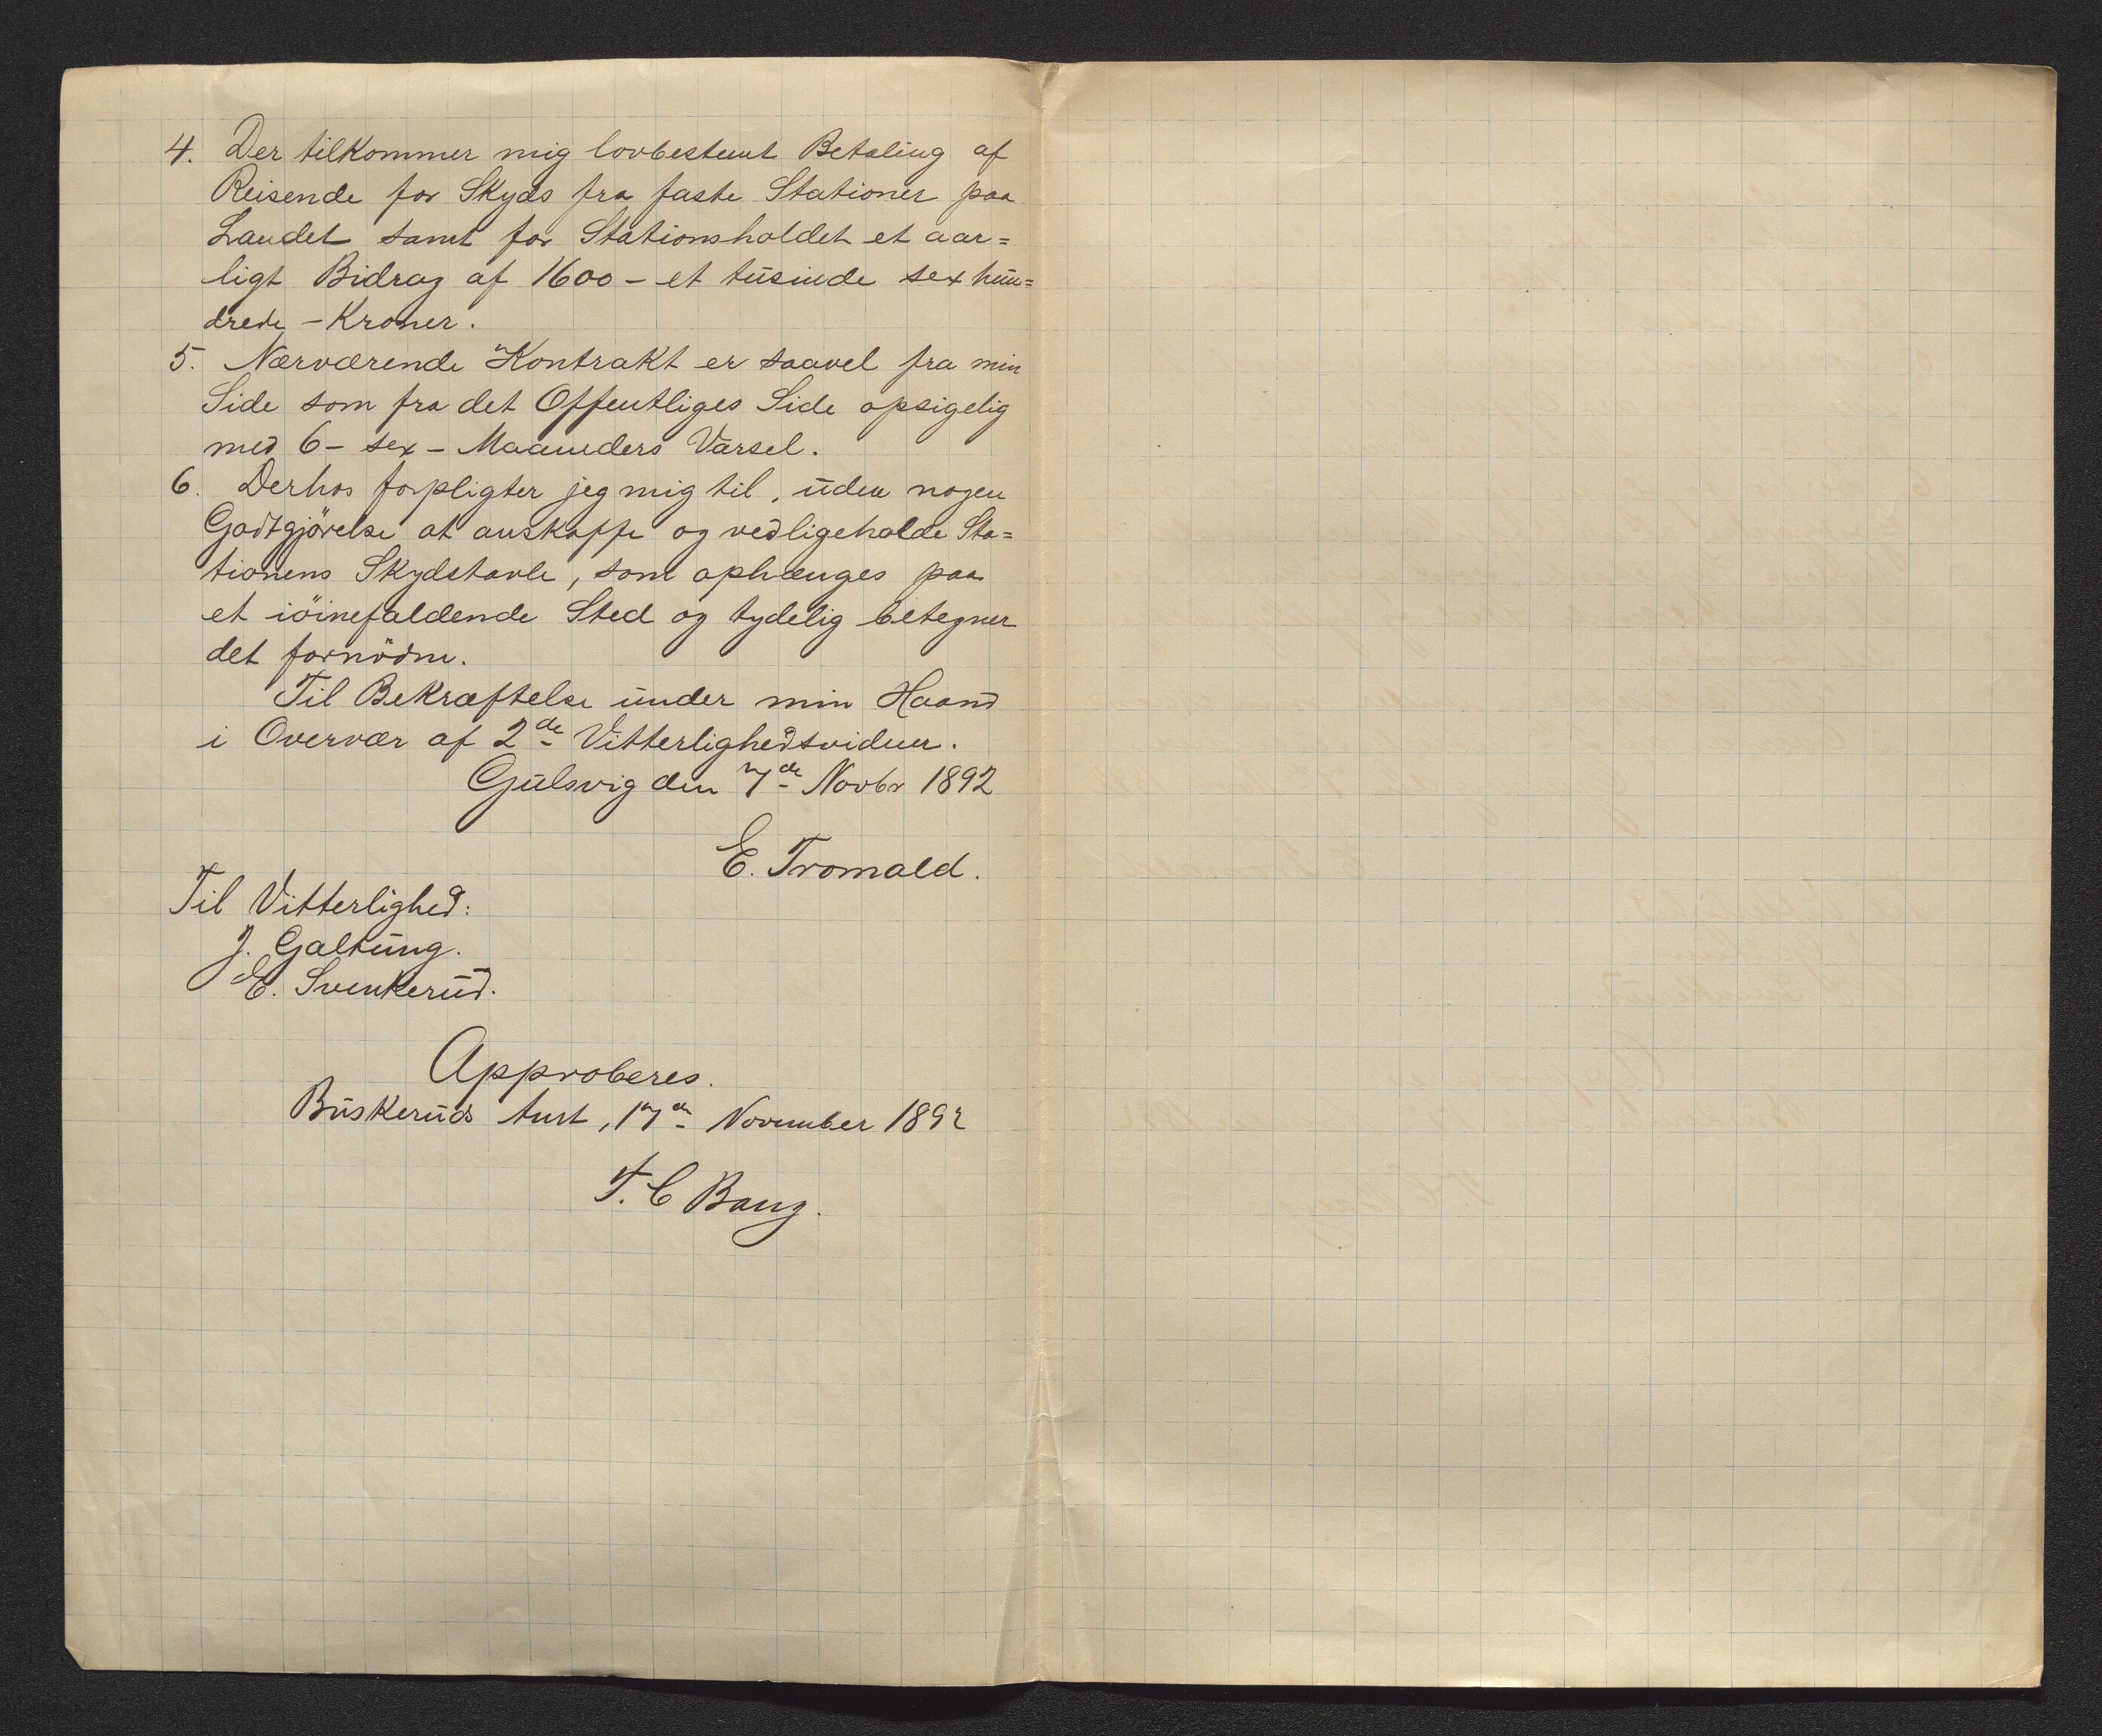 4. Der tilkommer mig lovbestemt Betaling af
Reisende for Skyds fra faste Stationer paa
Landet samt for Stationsholdet et aar=
ligt Bidrag af 1600 – et tusinde sex hun=
drede – Kroner.
5. Nærværende Kontrakt er saavel fra min
Side som fra det Offentliges Side opsigelig
med 6 – sex – Maaneders Varsel.
6. Derhos forpligter jeg mig til, uden nogen
Godtgjörelse at anskaffe og vedligeholde Sta=
tionens Skydstavle, som ophænges paa
et iöinefaldende Sted og tydelig betegner
det fornödne.
Til Bekræftelse under min Haand
i Overvær af 2de Vitterlighedsvidner.
Gulsvig den 7de Novbr 1892
E. Tromald.
Til Vitterlighed:
J. Galtung.
E. Svenkerud.
Approberes.
Buskeruds Amt, 17de November 1892
T. C Bang.